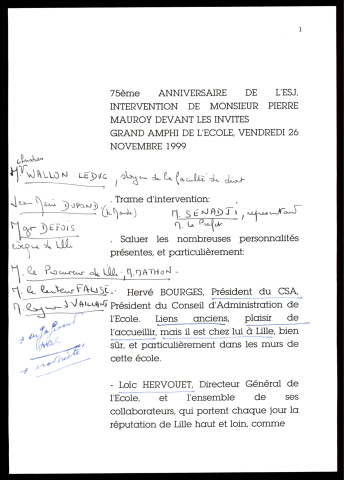 1
75ème ANNIVERSAIRE DE L'ESJ,
INTERVENTION DE MONSIEUR PIERRE
MAUROY DEVANT LES INVITES
GRAND AMPHI DE L'ECOLE, VENDREDI 26
NOVEMBRE 1999
WALLON LEDUC, doyen de la faculté de droit
Jean Marie DUPOND (le Monde)
. Trame d'intervention:
M. SENADJI, représentant
M. le Préfet
Mgr DEFOIS
évêque de Lille
. Saluer les nombreuses personnalités
présentes, et particulièrement:
M. le Procureur de Lille, M. MATHON.
M. le Recteur FALISE.
M. Raymond VAILLANT
- Hervé BOURGES, Président du CSA,
Président du Conseil d'Administration de
l'Ecole. Liens anciens, plaisir de
l'accueillir, mais il est chez lui à Lille, bien
sûr, et particulièrement dans les murs de
cette école.
- Loïc HERVOUET, Directeur Général de
l'Ecole, et l'ensemble de ses
collaborateurs, qui portent chaque jour la
réputation de Lille haut et loin, comme